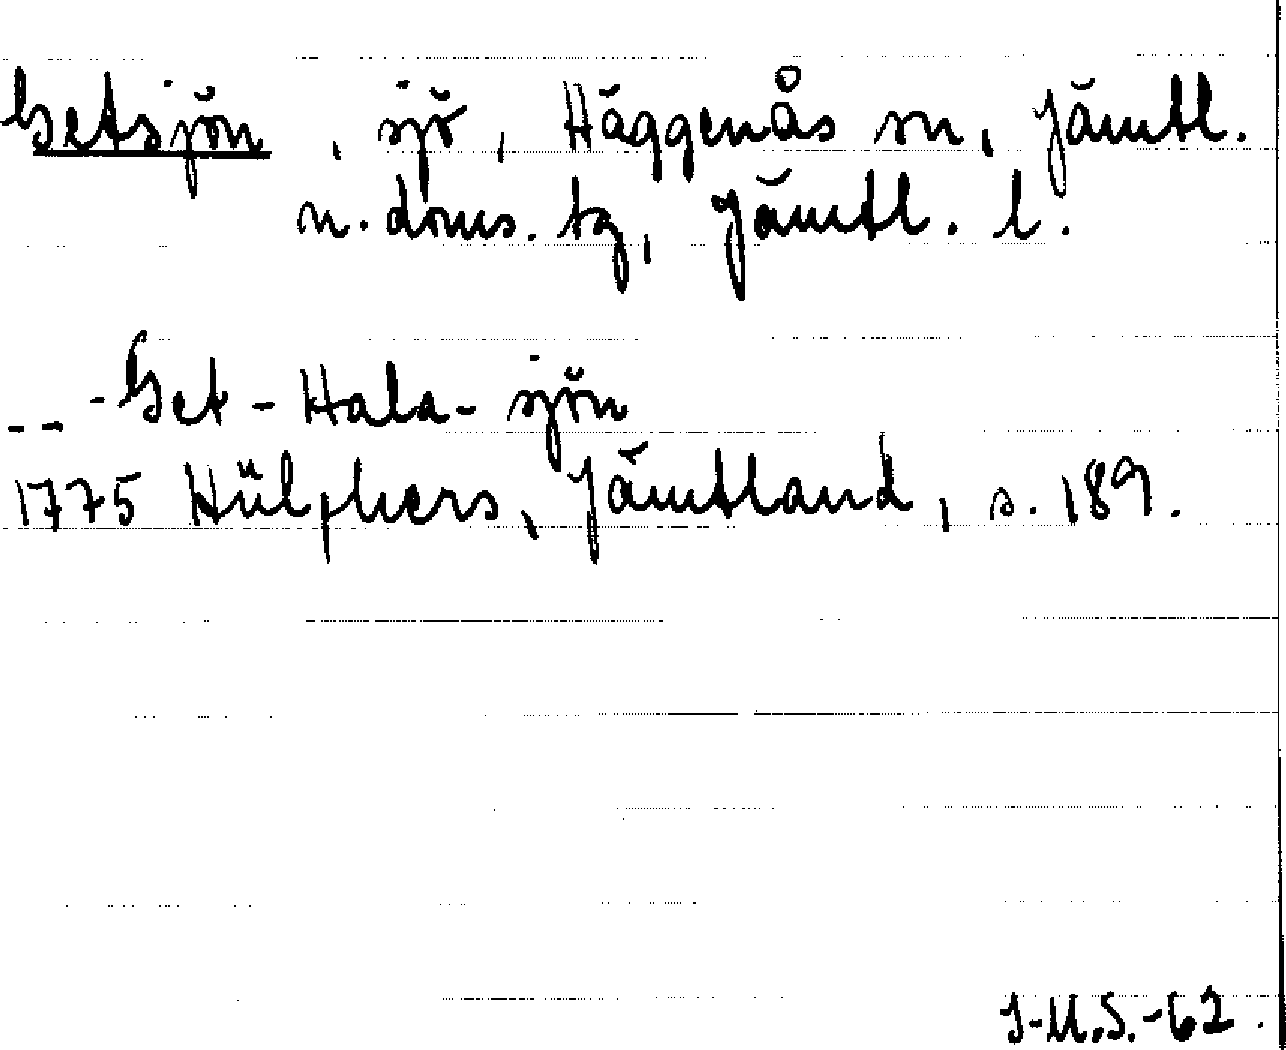 Getsjön, sjö, Häggenås sn, Jämtl.
n. doms. tg, Jämtl. l.
-- -Get-Hala-sjön
1775 Hülphers, Jämtland, s. 189.
I-M.S.-62.